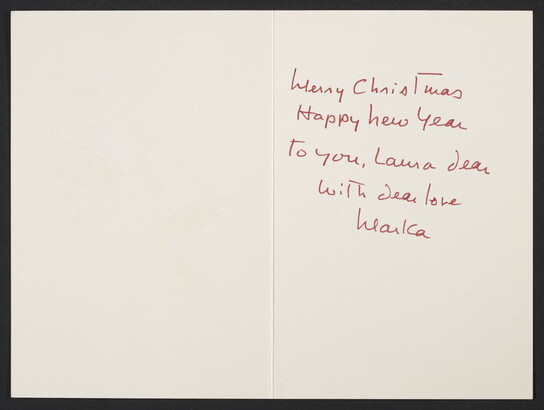 Merry Christmas
Happy New Year
To you, Laura dear
with dear love
Marka